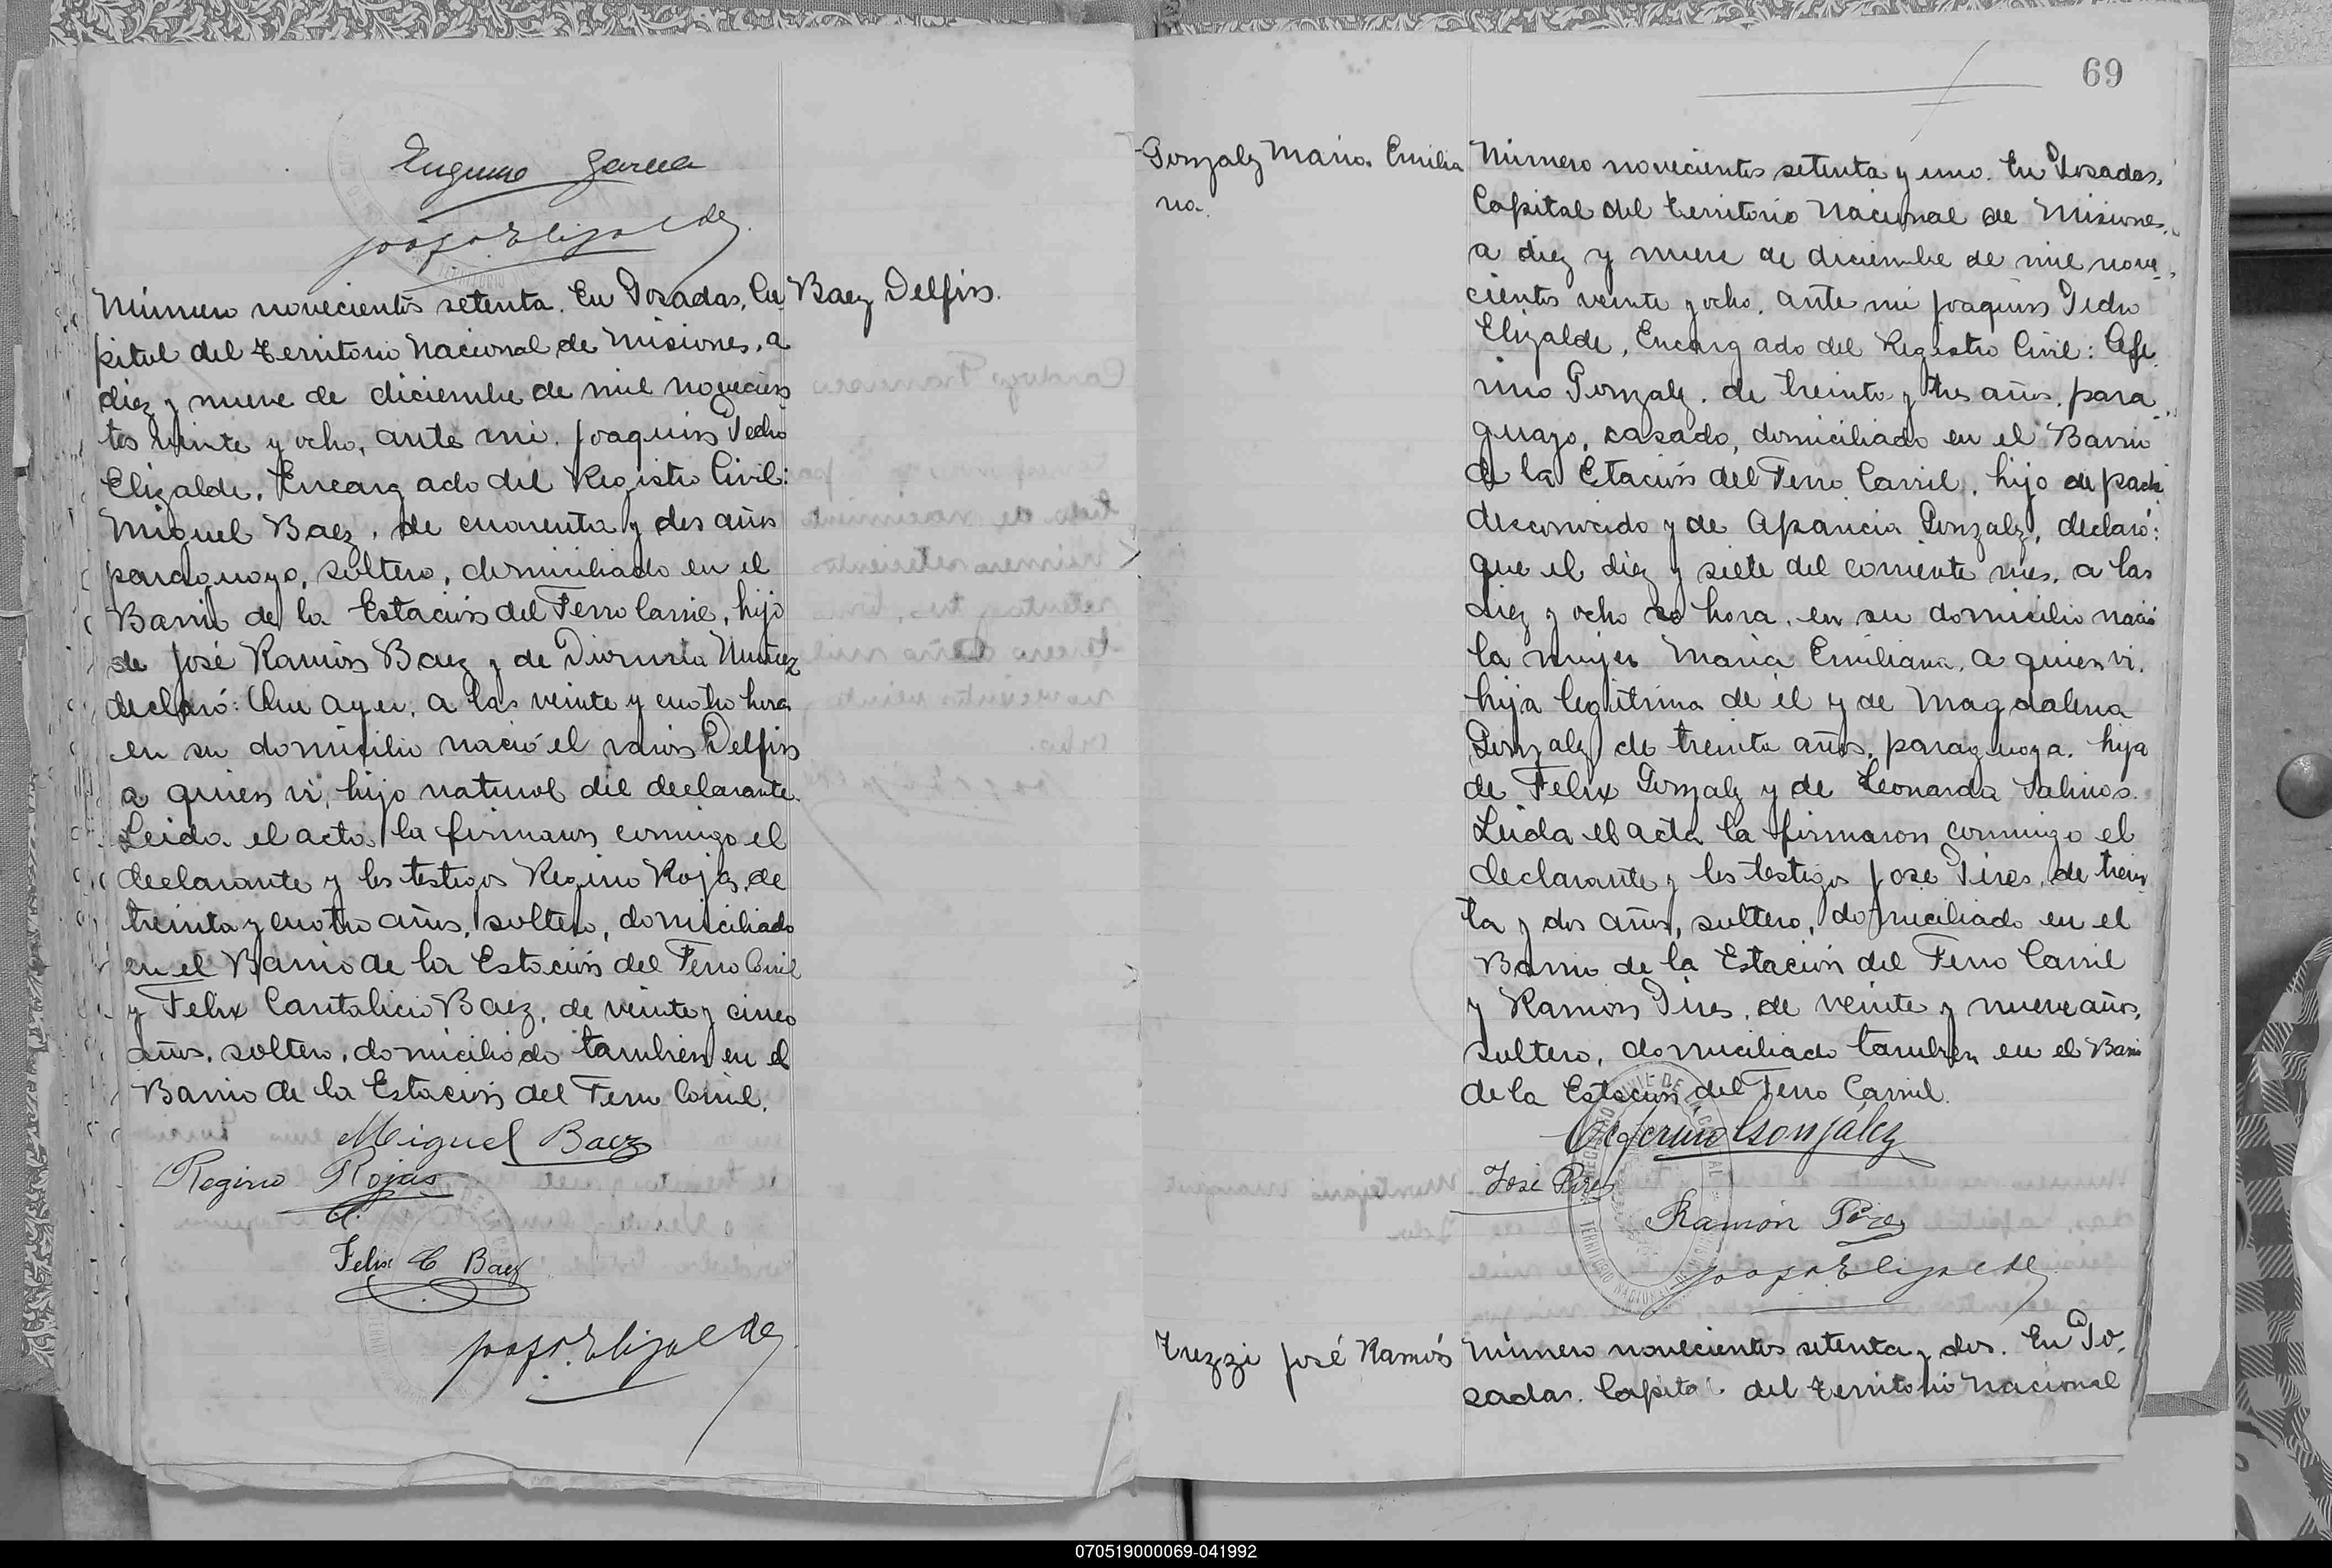 Eugenio Garcia
Joaq. P. Elizalde
Número novecientos setenta. En Posadas, Ca
pital del Territorio Nacional de Misiones, a
diez y nueve de diciembre de mil novecien
tos veinte y ocho, ante mi, Joaquin Pedro
Elizalde, Encargado del Registro Civil:
Miguel Baez, de cuarenta y dos años
paraguayo, soltero, domiciliado en el
Barrio de la Estación del Ferro Carril, hijo
de José Ramón Baez y de Nuñez
declaró: Que ayer, a las veinte y cuatro horas
en su domicilio nació el varón Delfin
a quien vi, hijo natural del declarante.
Leida el acta la firmaron conmigo el
declarante y los testigos Regino Rojas, de
treinta y cuatro años, soltero, domiciliado
en el Barrio de la Estación del Ferro Carril
y Felix Cantalicio Baez, de veinte y cinco
años, soltero, domiciliado tambien en el
Barrio de la Estación del Ferro Carril.
Miguel Baez
Regino Rojas
Felix C Baez
Joaq. P. Elizalde
Baez Delfin.
69
Gonzalz Maria Emilia
na.
Número novecientos setenta y uno. En Posadas,
Capital del Territorio Nacional de Misiones,
a diez y nueve de diciembre de mil nove
cientos veinte y ocho, ante mi Joaquin Pedro
Elizalde, Encargado del Registro Civil: Cefe
rino Gonzalz, de treinta y tres años, para
guayo, casado, domiciliado en el Barrio
de la Etación del Ferro Carril, hijo de padre
desconocido y de Aparicia Gonzalz, declaró:
que el diez y siete del corriente mes, a las
diez y ocho hora, en su domicilio nació
la mujer Maria Emiliana, a quien vi,
hija legitima de él y de Magdalena
Gonzalz de treinta años, paraguaya, hija
de Felix Gonzalz y de Leonarda Salinas.
Leida el acta la firmaron conmigo el
declarante y los testigos José Pires, de trein
ta y dos años, soltero, domiciliado en el
Barrio de la Estación del Ferro Carril
y Ramón Pires, de veinte y nueve años,
soltero, domiciliado tambien en el Barrio
de la Estación del Ferro Carril.
Ceferino Gonzalez
José Pires
Ramón Pires
Joaq. P. Elizalde
Trezzi José Ramón
Número novecientos setenta y dos. En Po
sadas. Capital del Territorio Nacional
070519000069-041992